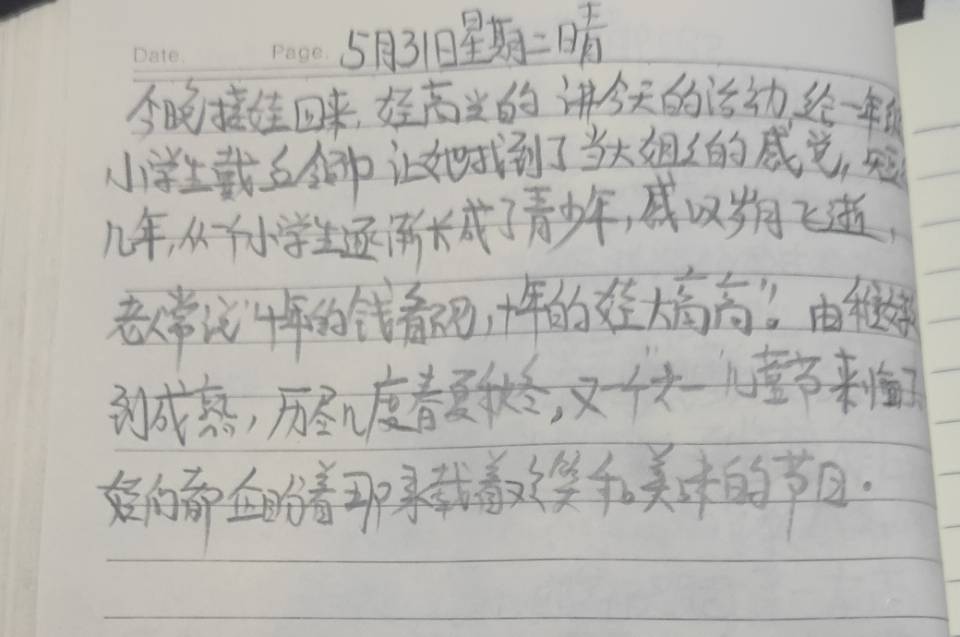 Date. Page. 5月31日星期二晴
今晚接娃回来,娃高兴的讲今天的活动,给一年级
小学生戴红领巾让她找到了当大姐姐的感觉,
几年,从一个小学生逐渐长成了青少年,感叹岁月飞逝,
老人常说"十年的钱看 ,十年的娃大高高"。由稚嫩
到成熟,历经几度春夏秋冬,又一个"六一"儿童节来临了
娃们都企盼着那承载着欢笑和美味的节日.